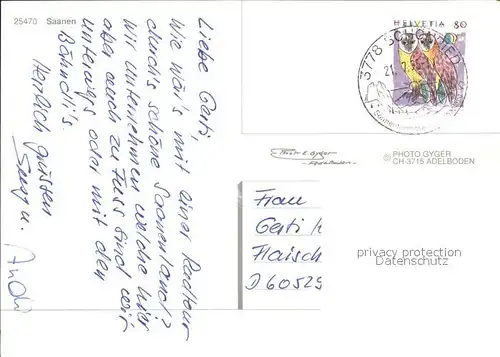 25470 Saanen
Liebe Gerti,
Wie wär's mit einer Radtour
durchs schöne Saanenland?
Wir unternehmen welche hier
aber auch zu Fuss sind wir
unterwegs oder mit den
Bähndli's.
Herzlich grüssen
u.
Andi
HELVETIA 80
3778 SCHÖNRIED
© PHOTO GYGER
CH-3715 ADELBODEN
Photo E. Gyger
Adelboden
Frau
Gerti
Flaisch
D 60529
privacy protection
Datenschutz